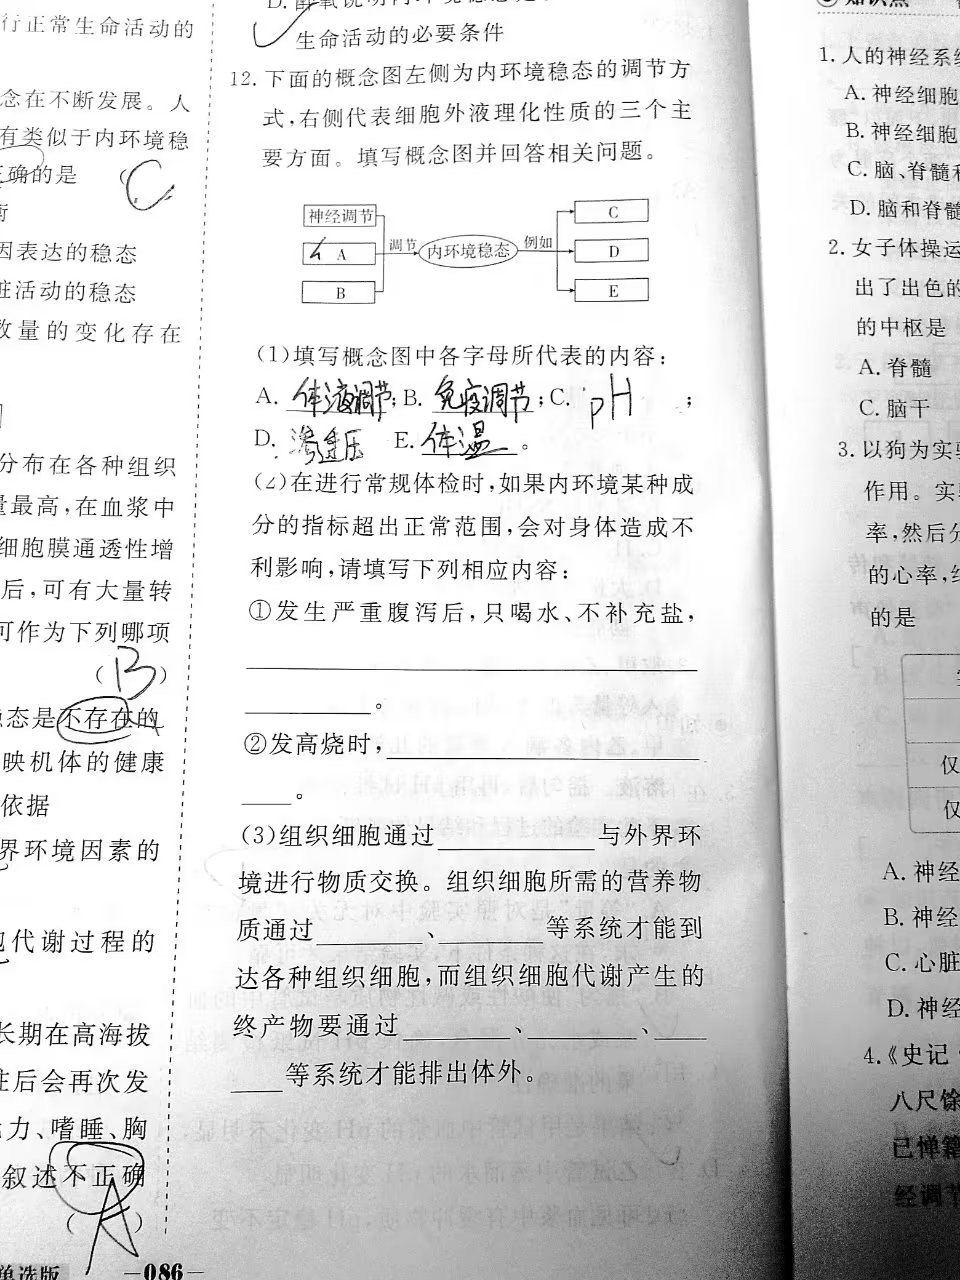 行正常生命活动的
念在不断发展。人
有类似于内环境稳
正确的是 ( C
衡
因表达的稳态
脏活动的稳态
数量的变化存在
分布在各种组织
量最高,在血浆中
细胞膜通透性增
后,可有大量转
可作为下列哪项
( B )
稳态是不存在的
映机体的健康
依据
界环境因素的
胞代谢过程的
长期在高海拔
驻后会再次发
力、嗜睡、胸
叙述不正确
( A )
单选版 —086—
生命活动的必要条件
12.下面的概念图左侧为内环境稳态的调节方
式,右侧代表细胞外液理化性质的三个主
要方面。填写概念图并回答相关问题。
神经调节
A
B
调节
内环境稳态
例如
C
D
E
(1)填写概念图中各字母所代表的内容:
A. 体液调节;B. 免疫调节;C. pH ;
D. 渗透压 E. 体温 。
(2)在进行常规体检时,如果内环境某种成
分的指标超出正常范围,会对身体造成不
利影响,请填写下列相应内容:
①发生严重腹泻后,只喝水、不补充盐,
。
②发高烧时,
。
(3)组织细胞通过 与外界环
境进行物质交换。组织细胞所需的营养物
质通过 、 等系统才能到
达各种组织细胞,而组织细胞代谢产生的
终产物要通过 、 、
等系统才能排出体外。
1.人的神经系统
A.神经细胞
B.神经细胞
C.脑、脊髓和
D.脑和脊髓
2.女子体操运
出了出色的
的中枢是
A.脊髓
C.脑干
3.以狗为实验
作用。实验
率,然后分
的心率,
的是
仅
仅
A.神经
B.神经
C.心脏
D.神经
4.《史记·
八尺馀
已惮籍
经调节